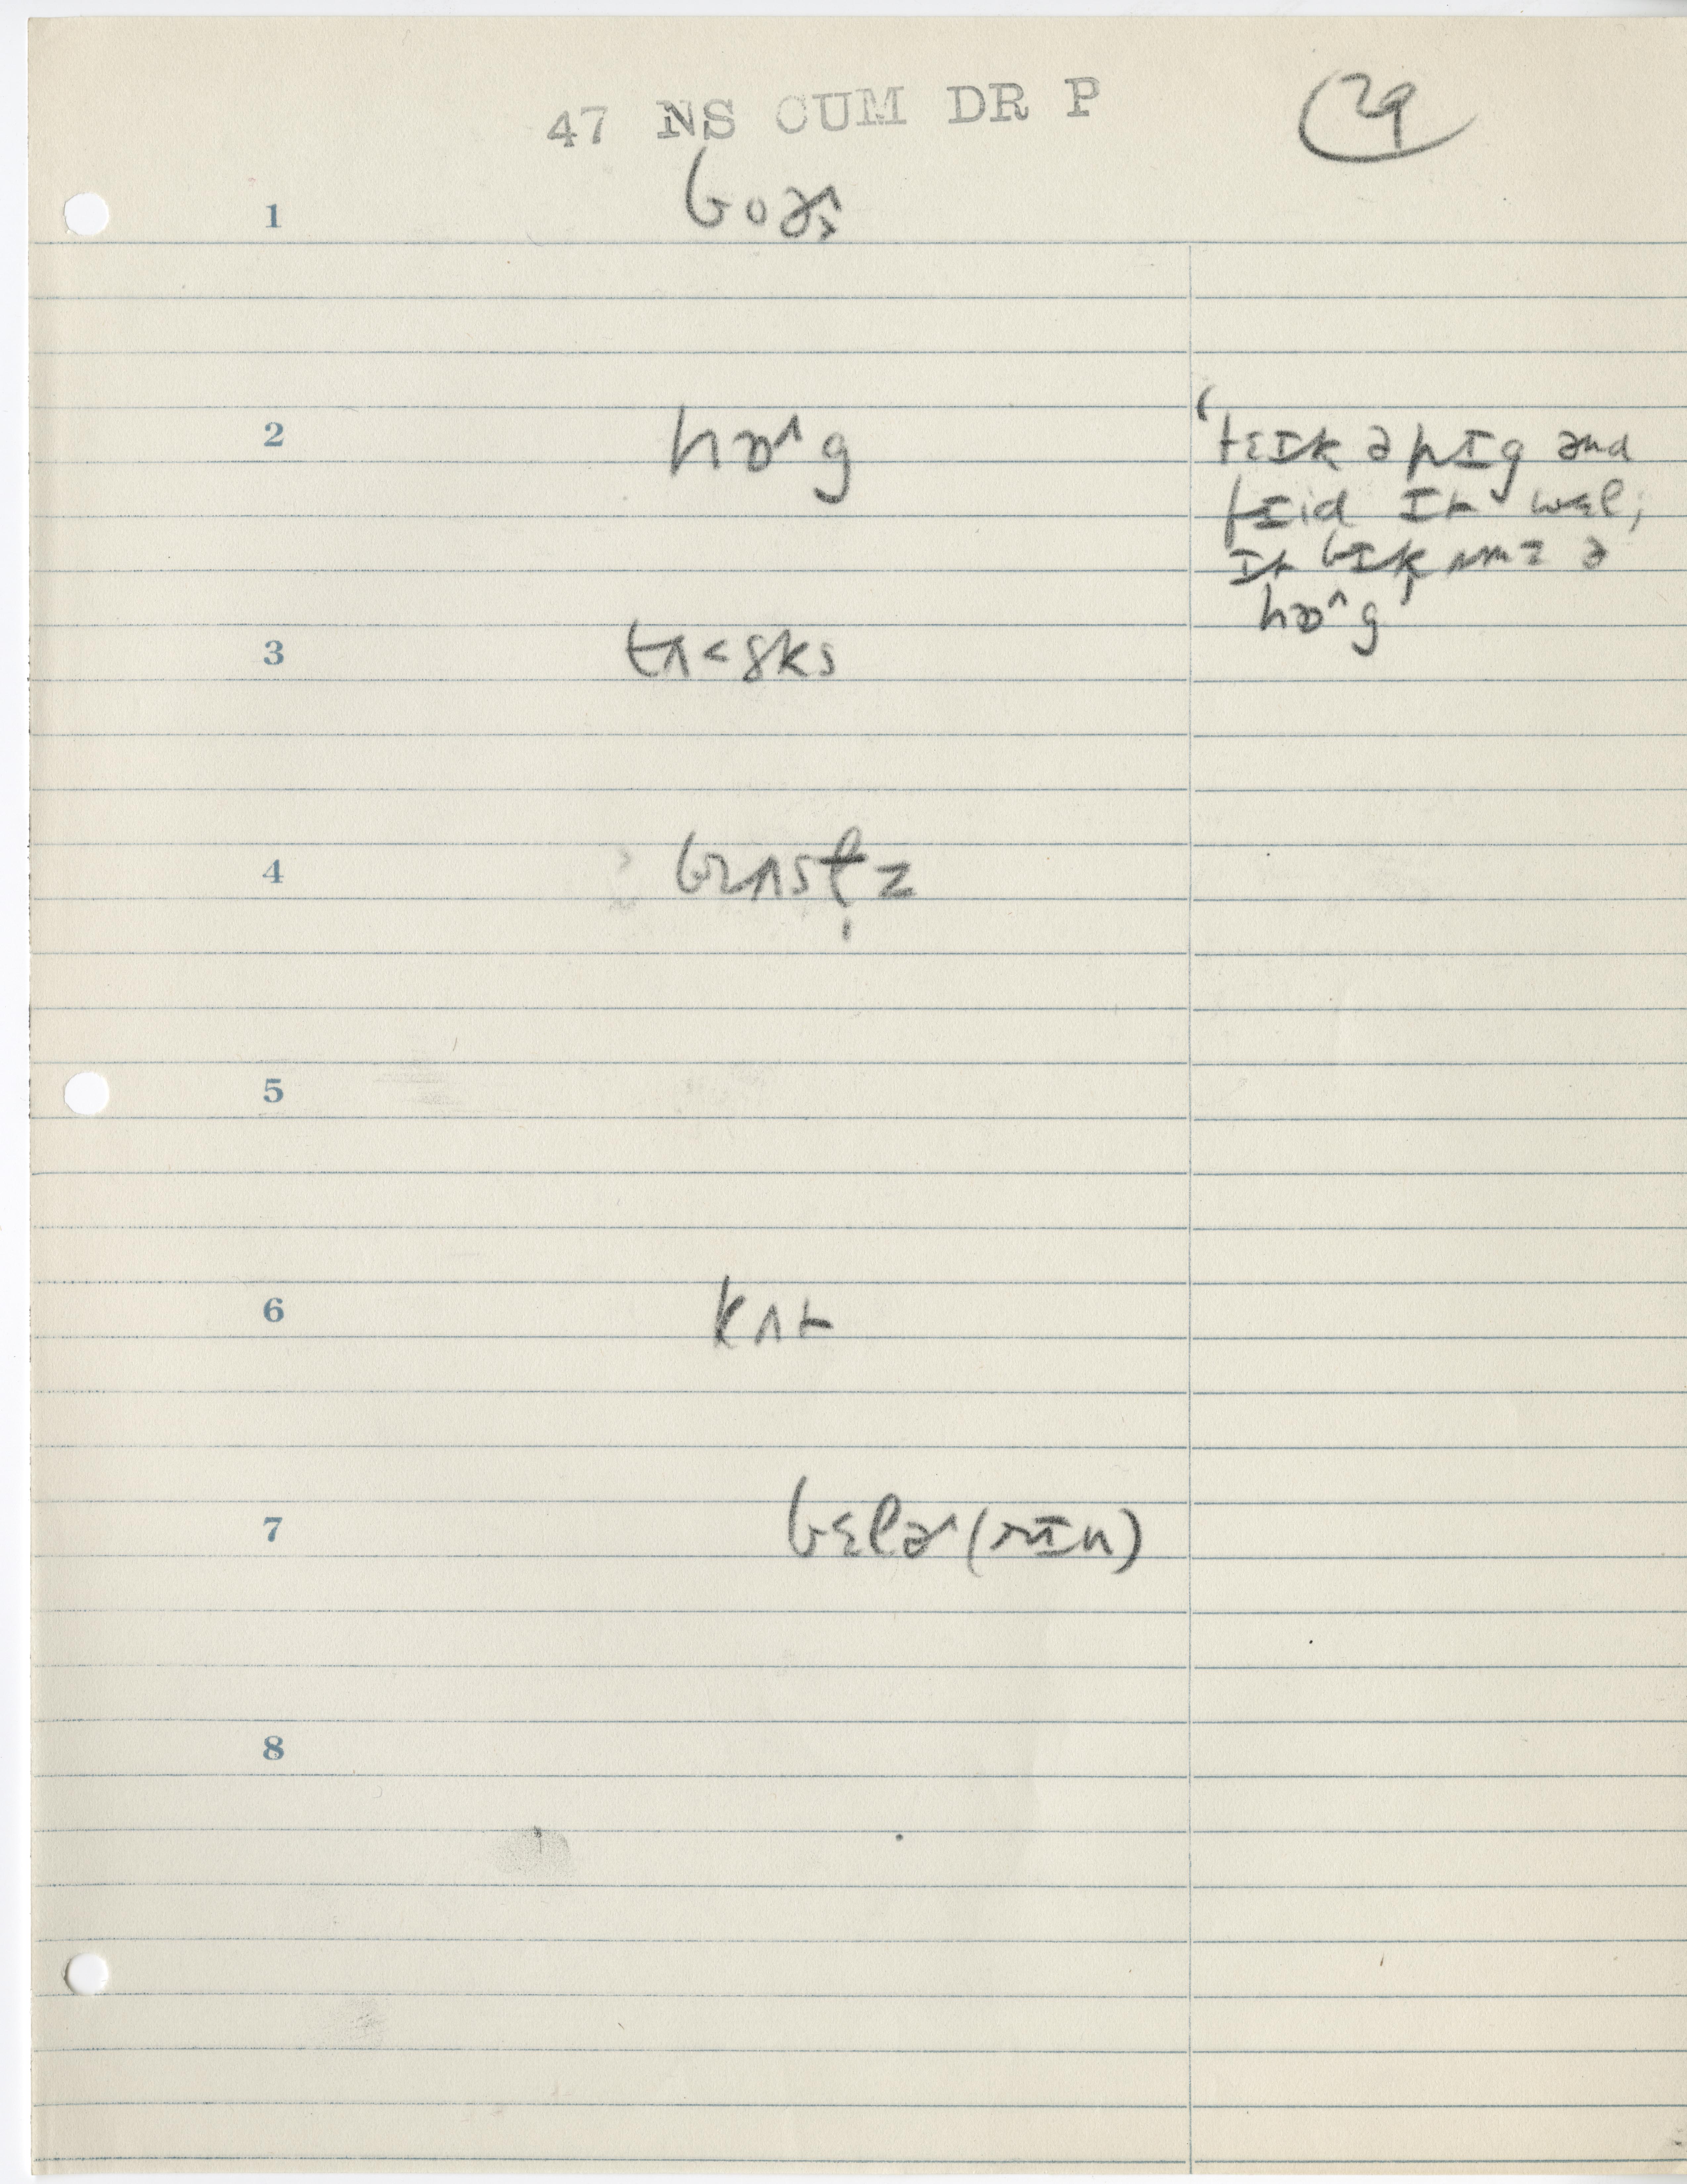 47 NS CUM DR P
29
1
boɚ
2
hɒ^g
'tɛɪk ə pɪg ənd
fɪid ɪt wɛl;
ɪt bɪkʌmz ə
hɒ^g'
3
tʌ<sks
4
brʌsl̩z
5
6
kʌt
7
bɛlɚ(rɪn)
8